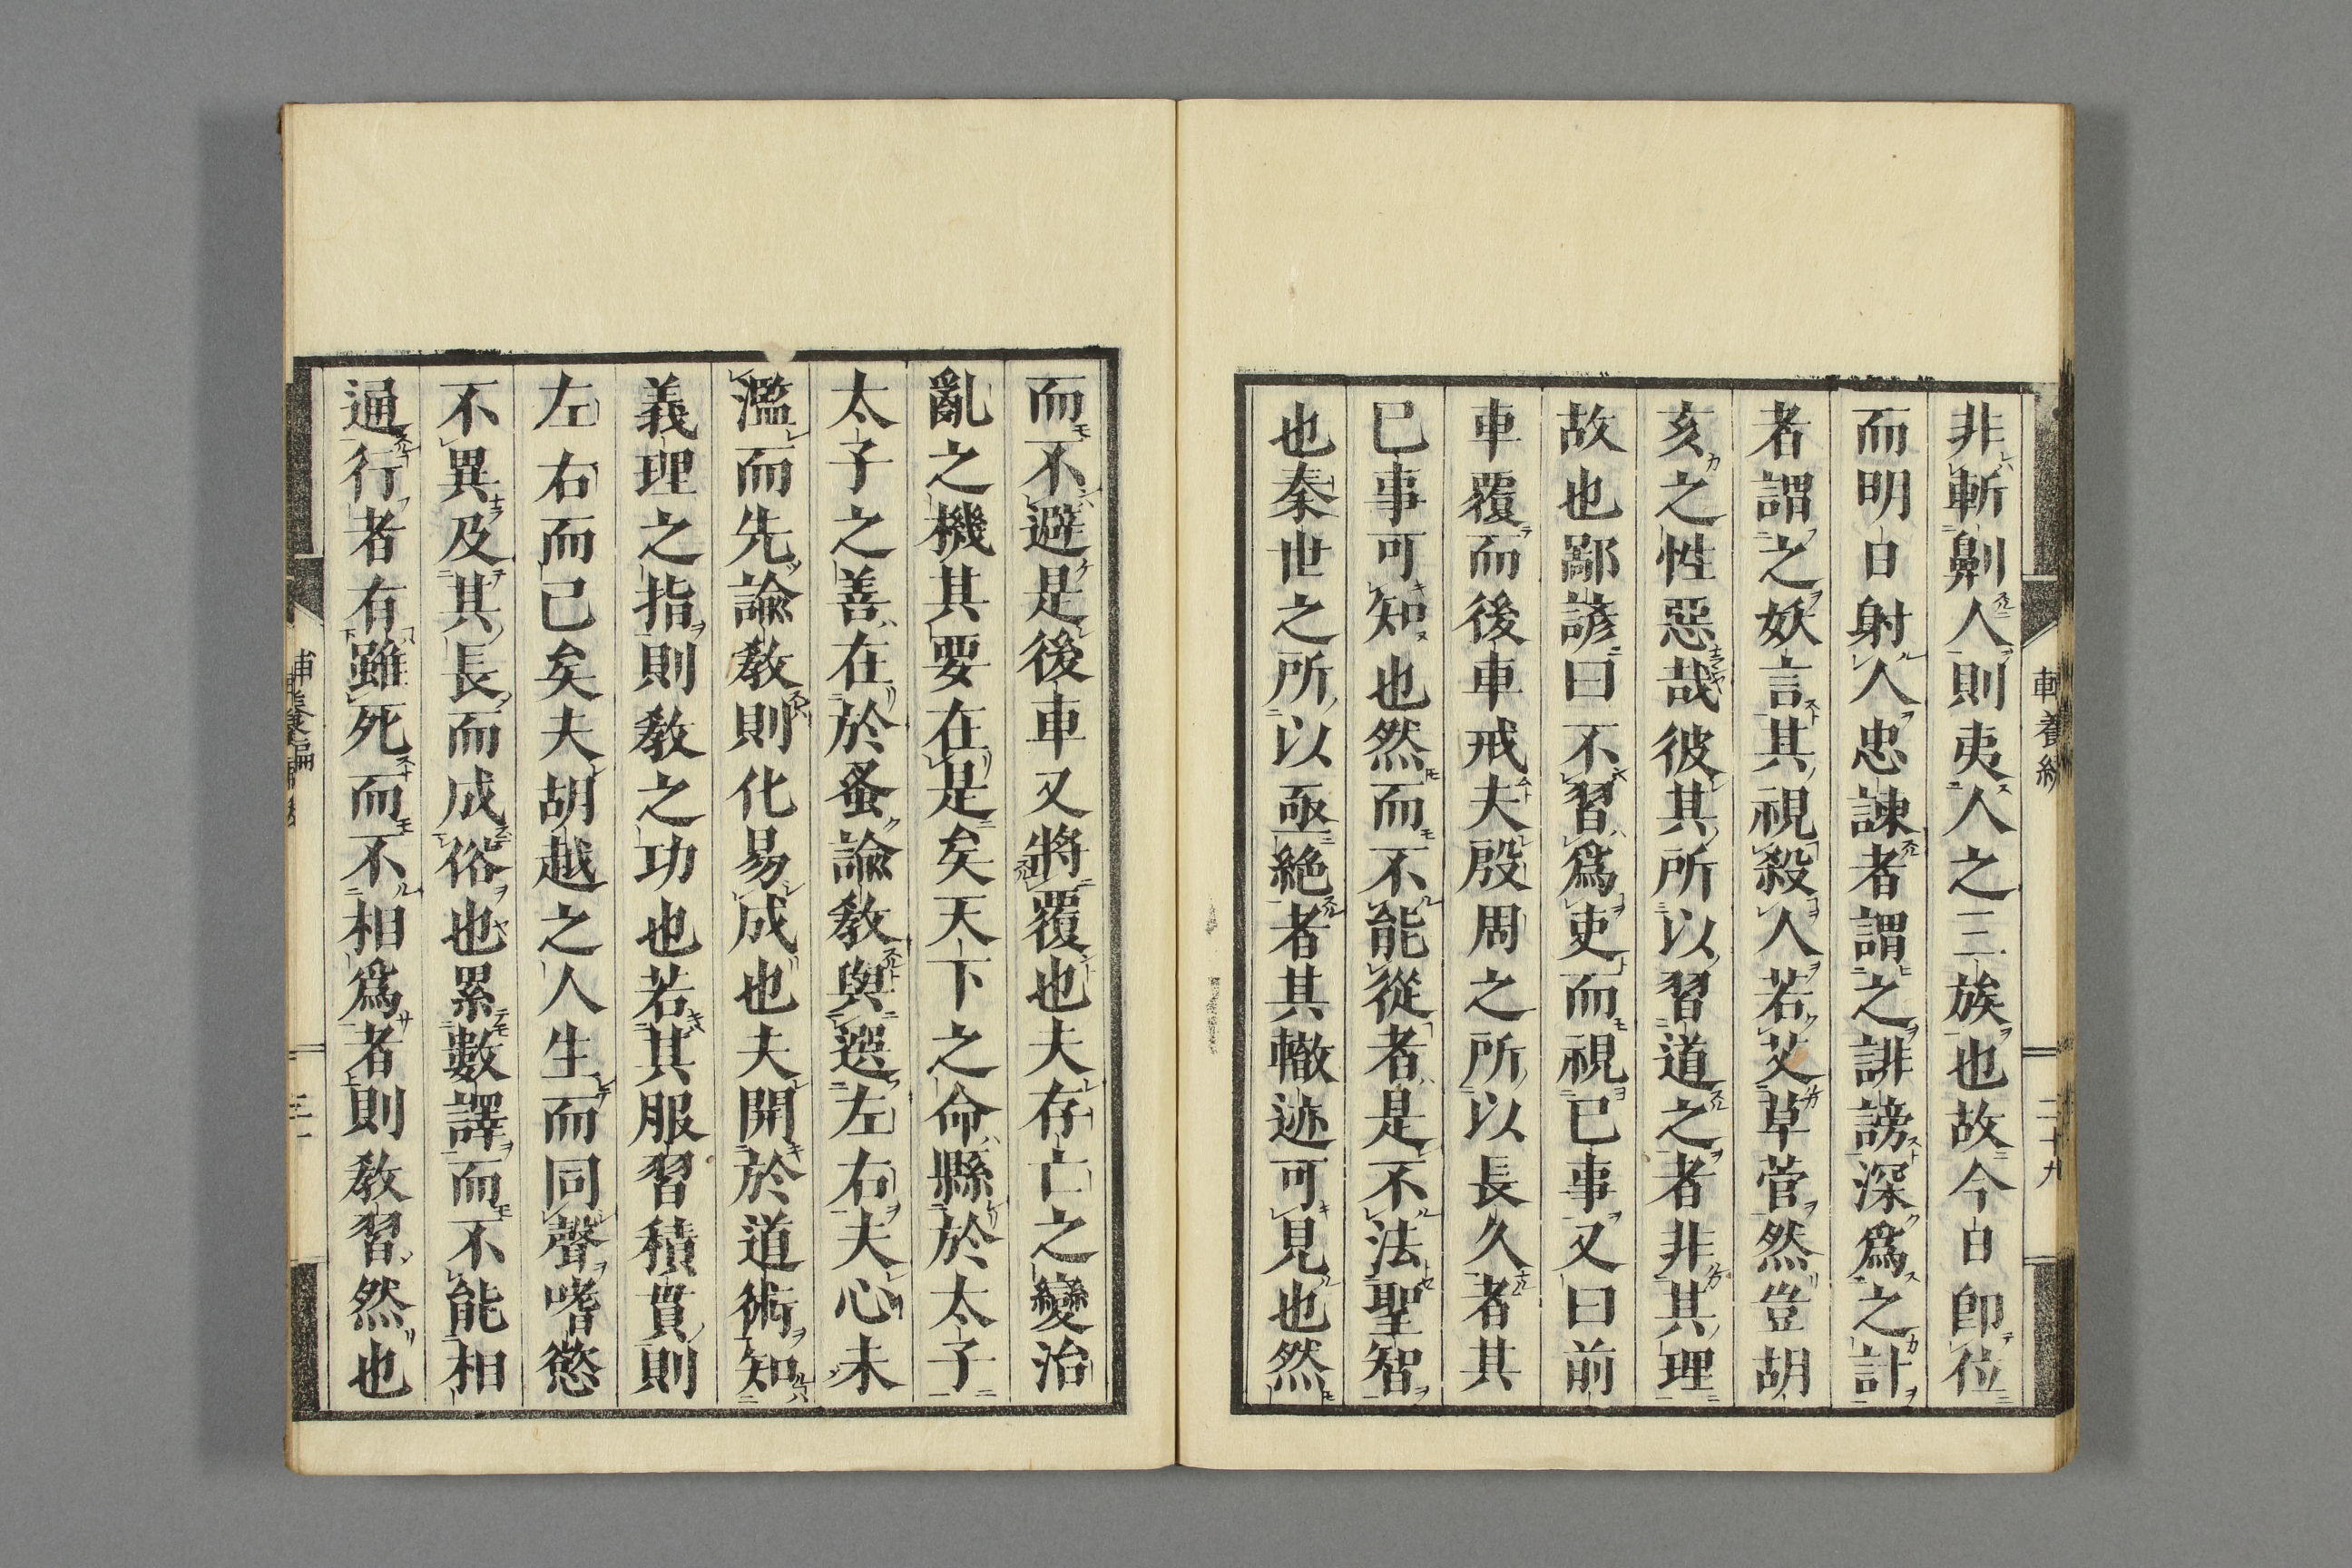 非斬劓人則夷人之三族也故今日卽位
而明日射人忠諫者謂之誹謗深爲之計
者謂之妖言其視殺人若艾草菅然豈胡
亥之性惡哉彼其所以習道之者非其理
故也鄙諺曰不習爲吏而視已事又曰前
車覆而後車戒夫殷周之所以長久者其
已事可知也然而不能從者是不法聖智
也秦世之所以亟絶者其轍迹可見也然
而不避是後車又將覆也夫存亡之變治
亂之機其要在是矣天下之命縣於太子
太子之善在於蚤諭教與選左右夫心未
濫而先諭教則化易成也夫開於道術知
義理之指則教之功也若其服習積貫則
左右而已矣夫胡越之人生而同聲嗜慾
不異及其長而成俗也累數譯而不能相
通行者有雖死而不相爲者則教習然也